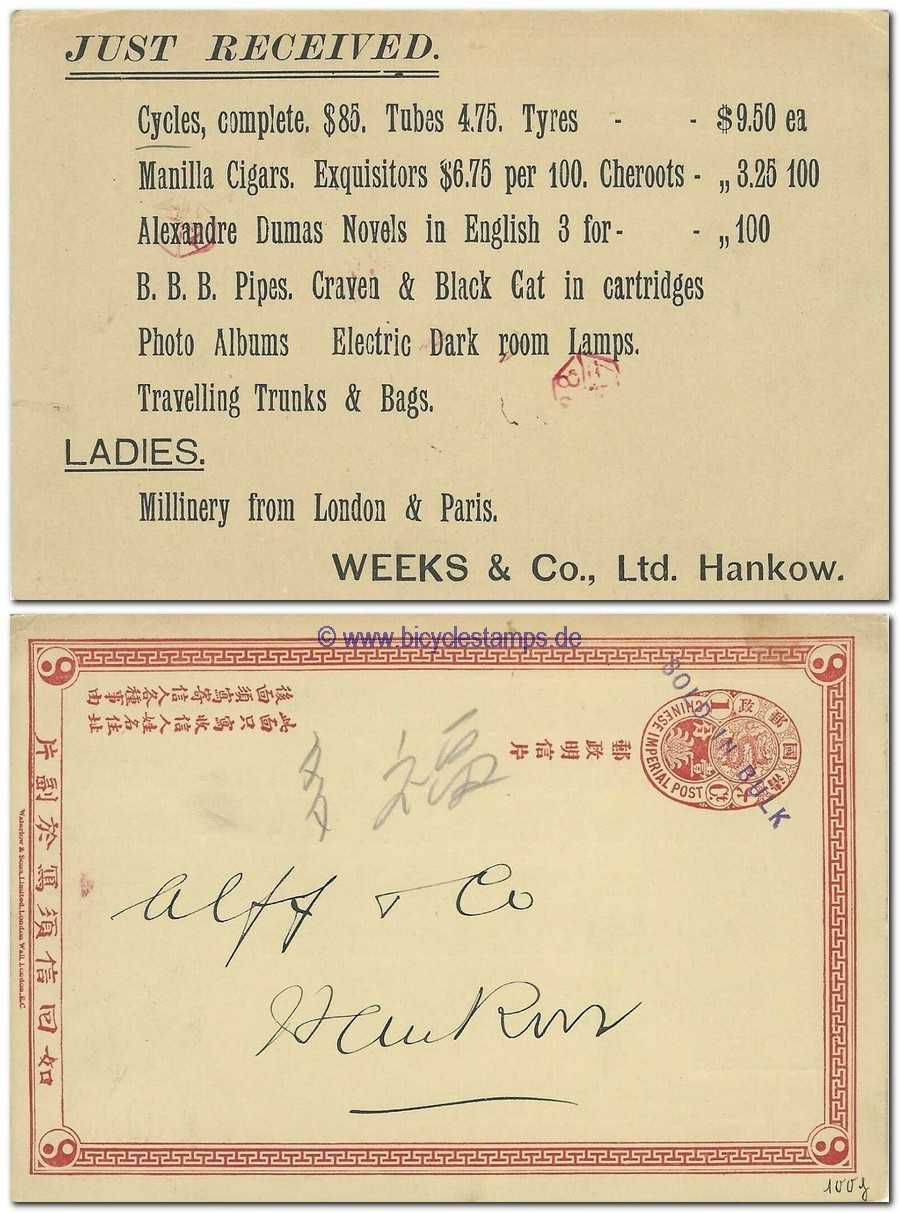 JUST RECEIVED.
Cycles, complete. $85. Tubes 4.75. Tyres - - $9.50 ea
Manilla Cigars. Exquisitors $6.75 per 100. Cheroots - „ 3.25 100
Alexandre Dumas Novels in English 3 for - - „ 100
B. B. B. Pipes. Craven & Black Cat in cartridges
Photo Albums Electric Dark room Lamps.
Travelling Trunks & Bags.
LADIES.
Millinery from London & Paris.
WEEKS & Co., Ltd. Hankow.
© www.bicyclestamps.de
CHINESE IMPERIAL POST
1 Ct
大清國郵政
SOLD IN BULK
郵政明信片
此面只寫收信人姓名住址
後面須寫寄信人各種事由
多福
Alff & Co
Hankow
如回信須寫於副片
Waterlow & Sons, Limited, London Wall, London, E.C.